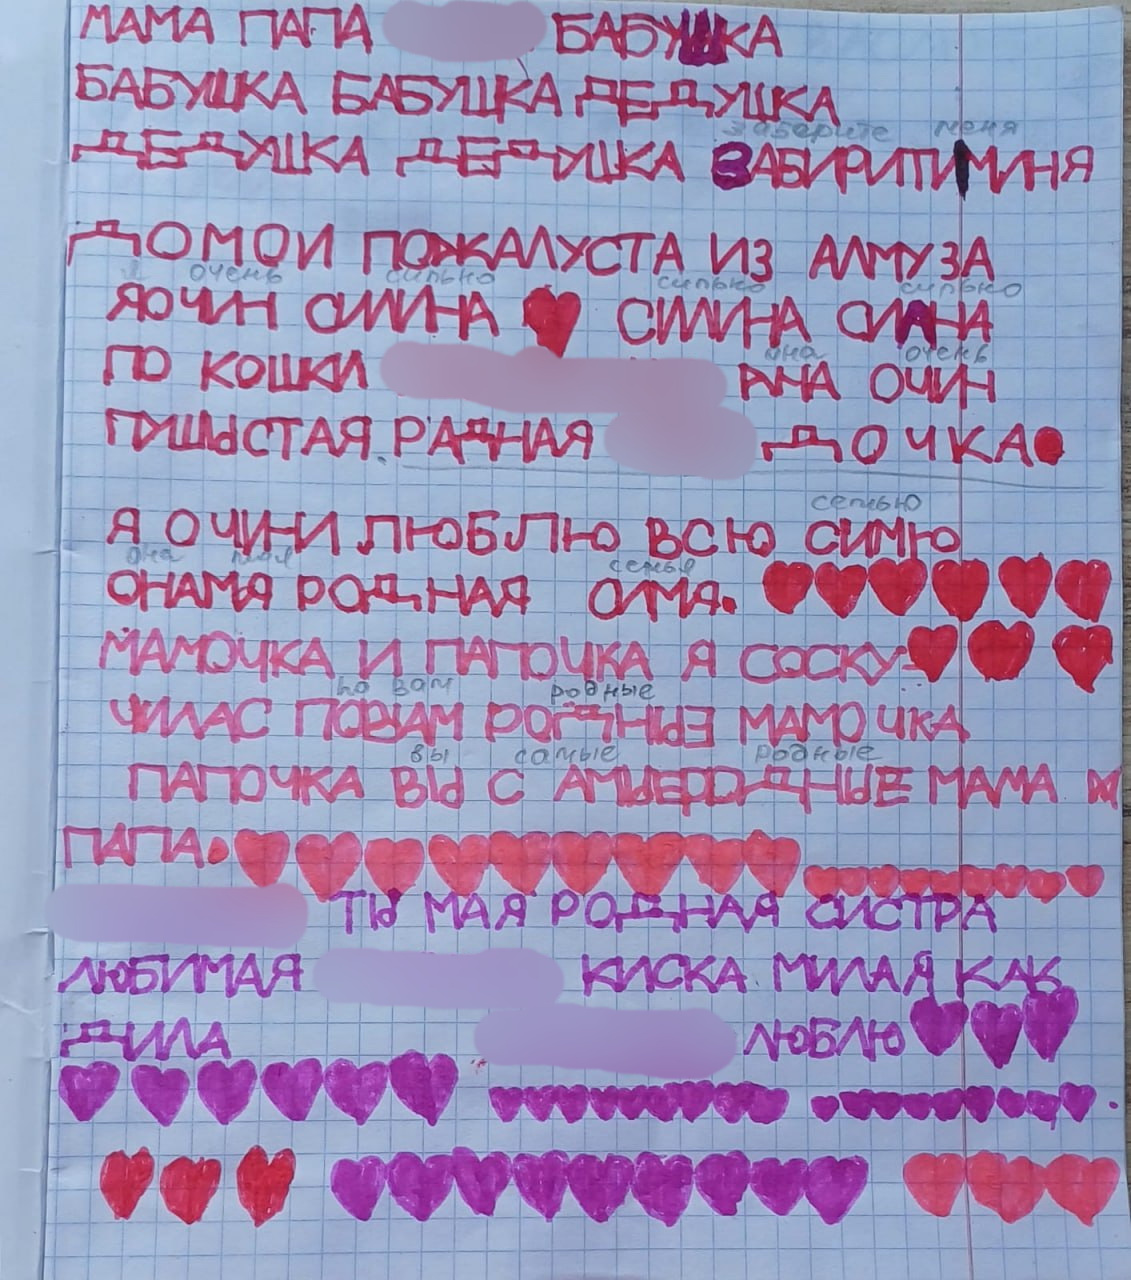 МАМА ПАПА БАБУШКА
БАБУШКА БАБУШКА ДЕДУШКА
заберите меня
ДЕДУШКА ДЕДУШКА ЗАБИРИТИМИНЯ
ДОМОИ ПОЖАЛУСТА ИЗ АЛМУЗА
я очень сильно сильно сильно
ЯОЧИН СИЛИНА СИЛИНА СИЛНА
ПО КОШКИ она очень
АНА ОЧИН
ПУШЫСТАЯ РАДНАЯ ДОЧКА.
семью
Я ОЧИНИ ЛЮБЛЮ ВСЮ СИМЮ
она мая семья
ОНАМАЯ РОДНАЯ СИМА.
МАМОЧКА И ПАПОЧКА Я СОСКУ-
по вам родные
ЧИЛАС ПОВАМ РОДНЫЕ МАМОЧКА
вы самые родные
ПАПОЧКА ВЫ С АМЫЕРОДНЫЕ МАМА
ПАПА.
ТЫ МАЯ РОДНАЯ СИСТРА
ЛЮБИМАЯ КИСКА МИЛАЯ КАК
ДИЛА ЛЮБЛЮ